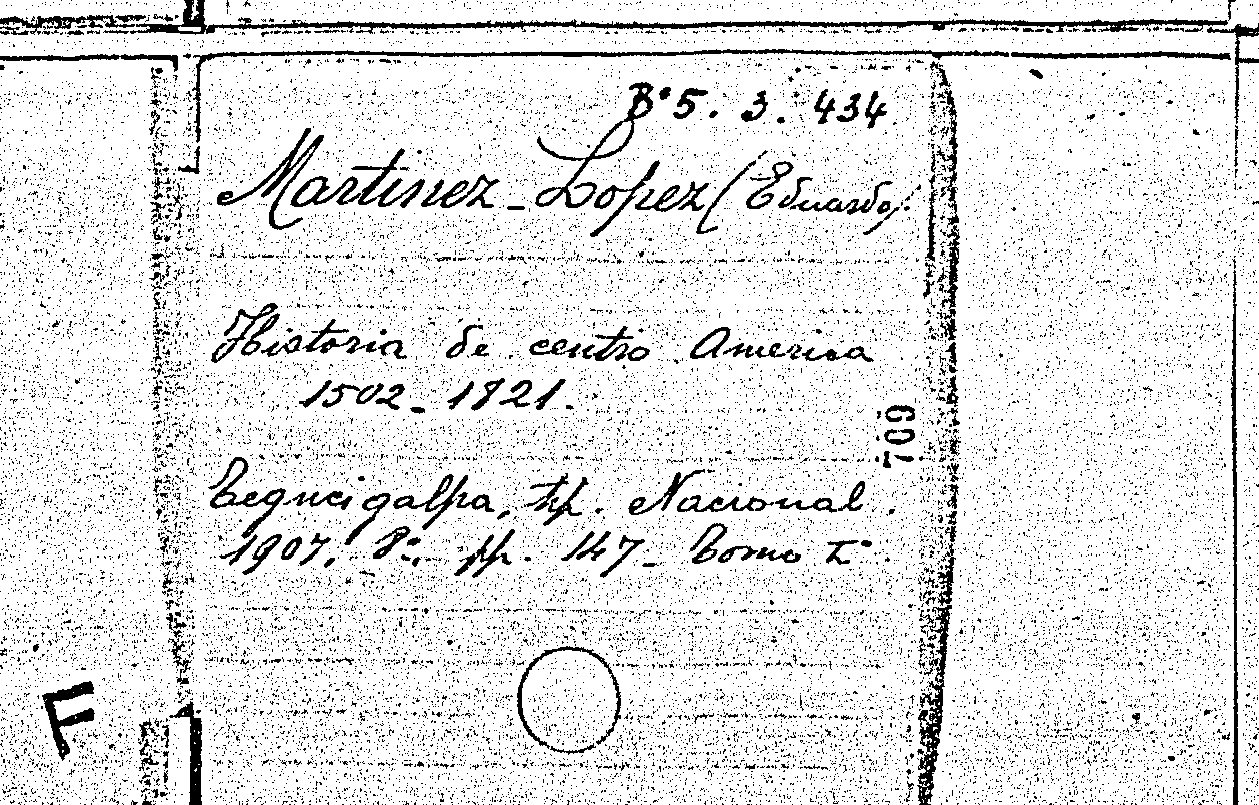 B° 5. 3. 434
Martinez-Lopez (Eduardo).
Historia de centro America
1502-1821.
709
Tegucigalpa, tip. Nacional.
1907. 8°. pp. 147- Tomo I°.
F